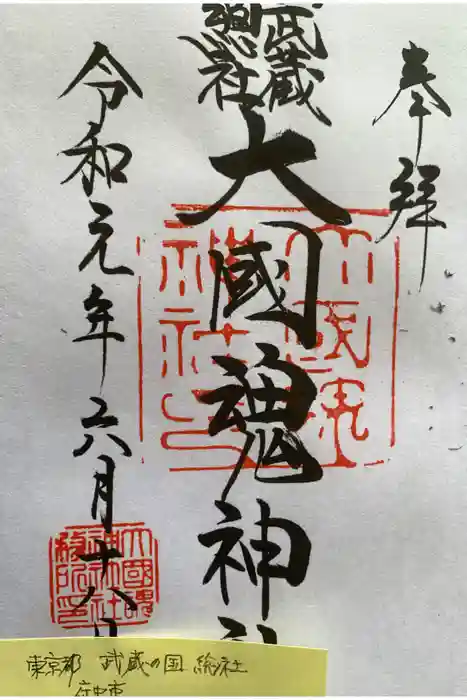 奉拝
武蔵
總社
大國魂神社
令和元年六月十八日
東京都 武蔵の国 総社
府中市